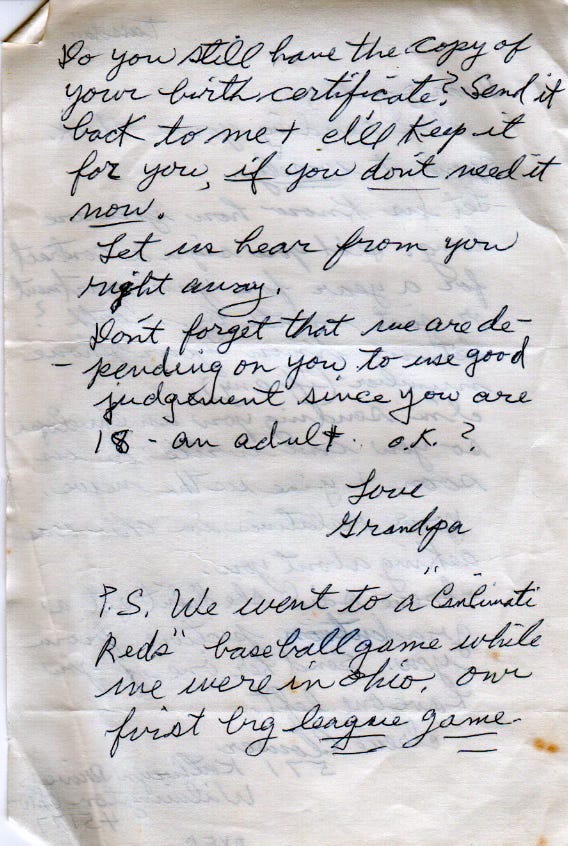 Do you still have the copy of
your birth certificate? Send it
back to me + I'll keep it
for you, if you don't need it
now.
Let us hear from you
right away.
Don't forget that we are de-
- pending on you to use good
judgement since you are
18 - an adult. O.K.?
Love
Grandpa
P.S. We went to a "Cincinnati
Reds" baseball game while
we were in Ohio. Our
first big league game.